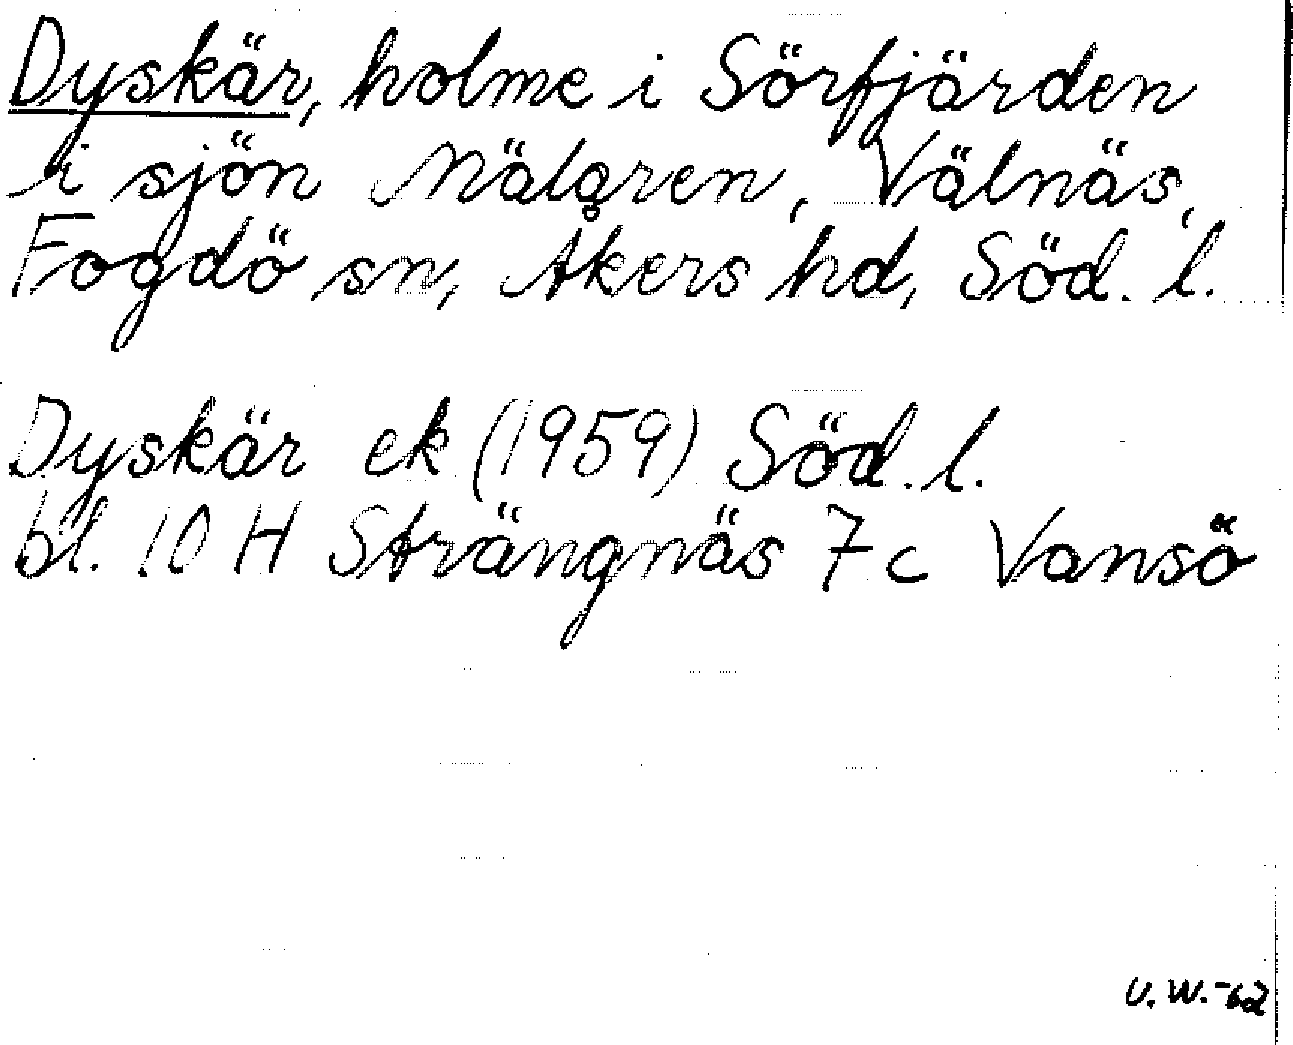 Dyskär, holme i Sörfjärden
i sjön Mälaren, Välnäs,
Fogdö sn, Åkers hd, Söd. l.
Dyskär ek (1959) Söd. l.
bl. 10 H Strängnäs 7 c Vansö
U. W. -62